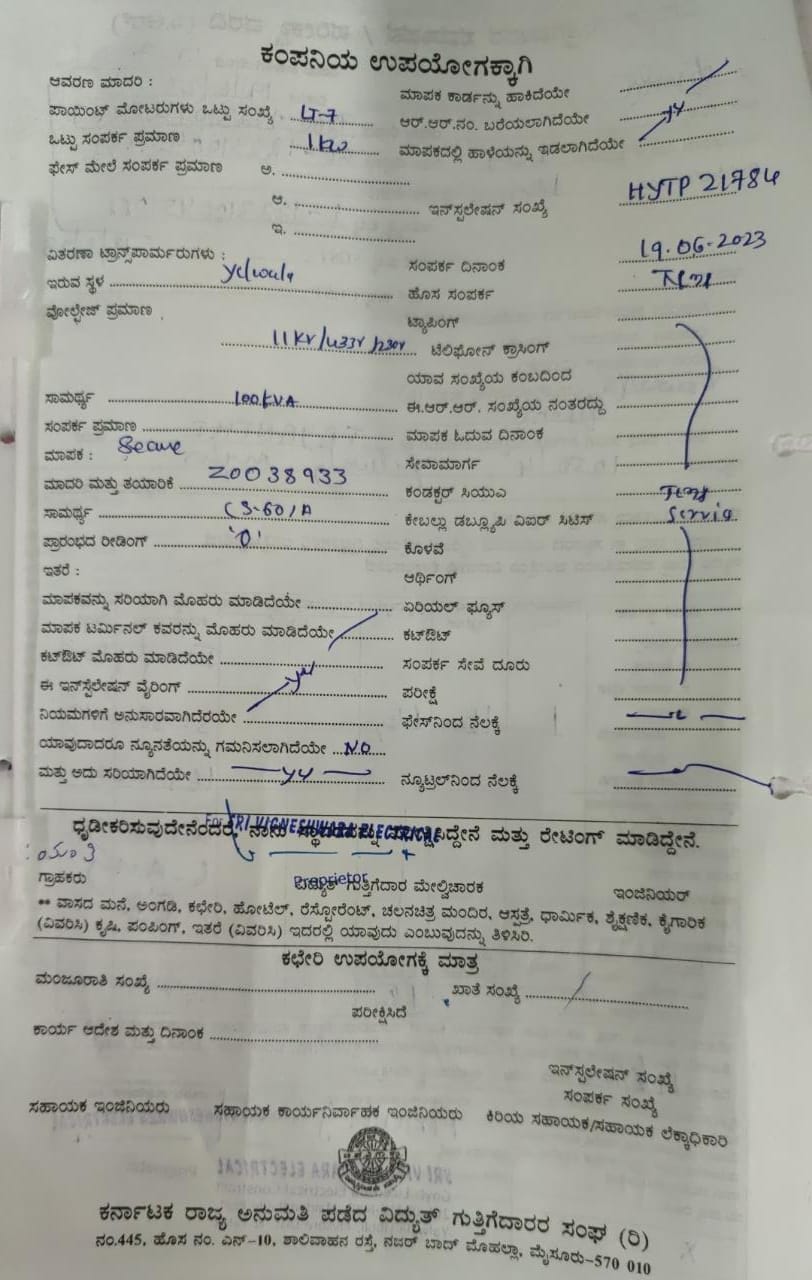 ಕಂಪನಿಯ ಉಪಯೋಗಕ್ಕಾಗಿ
ಆವರಣ ಮಾದರಿ :
ಮಾಪಕ ಕಾರ್ಡನ್ನು ಹಾಕಿದೆಯೇ
ಪಾಯಿಂಟ್ ಮೋಟರುಗಳು ಒಟ್ಟು ಸಂಖ್ಯೆ LT-7
ಆರ್.ಆರ್.ನಂ. ಬರೆಯಲಾಗಿದೆಯೇ
ಒಟ್ಟು ಸಂಪರ್ಕ ಪ್ರಮಾಣ 1kw
ಮಾಪಕದಲ್ಲಿ ಹಾಳೆಯನ್ನು ಇಡಲಾಗಿದೆಯೇ
ಫೇಸ್ ಮೇಲೆ ಸಂಪರ್ಕ ಪ್ರಮಾಣ ಅ.
ಆ.
ಇನ್‌ಸ್ಟಲೇಷನ್ ಸಂಖ್ಯೆ HYTP 21784
ಇ.
ವಿತರಣಾ ಟ್ರಾನ್ಸ್‌ಪಾರ್ಮರುಗಳು :
ಸಂಪರ್ಕ ದಿನಾಂಕ 19.06.2023
ಇರುವ ಸ್ಥಳ
ಹೊಸ ಸಂಪರ್ಕ
ವೋಲ್ಟೇಜ್ ಪ್ರಮಾಣ
ಟ್ಯಾಪಿಂಗ್
11KV/433V/230V
ಟೆಲಿಫೋನ್ ಕ್ರಾಸಿಂಗ್
ಯಾವ ಸಂಖ್ಯೆಯ ಕಂಬದಿಂದ
ಸಾಮರ್ಥ್ಯ 100KVA
ಈ.ಆರ್.ಆರ್. ಸಂಖ್ಯೆಯ ನಂತರದ್ದು
ಸಂಪರ್ಕ ಪ್ರಮಾಣ
ಮಾಪಕ ಓದುವ ದಿನಾಂಕ
ಮಾಪಕ :
ಸೇವಾಮಾರ್ಗ
ಮಾದರಿ ಮತ್ತು ತಯಾರಿಕೆ Z0038933
ಕಂಡಕ್ಟರ್ ಸಿಯುಎ
ಸಾಮರ್ಥ್ಯ
ಕೇಬಲ್ಲು ಡಬ್ಲ್ಯೂಪಿ ವಿಐರ್ ಸಿಟಿಸ್
ಪ್ರಾರಂಭದ ರೀಡಿಂಗ್ '0'
ಕೊಳವೆ
ಇತರೆ :
ಆರ್ಥಿಂಗ್
ಮಾಪಕವನ್ನು ಸರಿಯಾಗಿ ಮೊಹರು ಮಾಡಿದೆಯೇ
ಏರಿಯಲ್ ಫ್ಯೂಸ್
ಮಾಪಕ ಟರ್ಮಿನಲ್ ಕವರನ್ನು ಮೊಹರು ಮಾಡಿದೆಯೇ
ಕಟ್‌ಔಟ್
ಕಟ್‌ಔಟ್ ಮೊಹರು ಮಾಡಿದೆಯೇ
ಸಂಪರ್ಕ ಸೇವೆ ದೂರು
ಈ ಇನ್‌ಸ್ಟೆಲೇಷನ್ ವೈರಿಂಗ್
ಪರೀಕ್ಷೆ
ನಿಯಮಗಳಿಗೆ ಅನುಸಾರವಾಗಿದೆರಯೇ
ಫೇಸ್‌ನಿಂದ ನೆಲಕ್ಕೆ
ಯಾವುದಾದರೂ ನ್ಯೂನತೆಯನ್ನು ಗಮನಿಸಲಾಗಿದೆಯೇ NO
ಮತ್ತು ಅದು ಸರಿಯಾಗಿದೆಯೇ
ನ್ಯೂಟ್ರಲ್‌ನಿಂದ ನೆಲಕ್ಕೆ
For SRI VIGNESHWARA ELECTRICAL
ಧೃಡೀಕರಿಸುವುದೇನೆಂದರೆ, ನಾನು ಮತ್ತು ರೇಟಿಂಗ್ ಮಾಡಿದ್ದೇನೆ.
Proprietor
ಗ್ರಾಹಕರು
ವಿದ್ಯುತ್ ಗುತ್ತಿಗೆದಾರ ಮೇಲ್ವಿಚಾರಕ
ಇಂಜಿನಿಯರ್
** ವಾಸದ ಮನೆ, ಅಂಗಡಿ, ಕಛೇರಿ, ಹೋಟೆಲ್, ರೆಸ್ಟೋರೆಂಟ್, ಚಲನಚಿತ್ರ ಮಂದಿರ, ಆಸ್ಪತ್ರೆ, ಧಾರ್ಮಿಕ, ಶೈಕ್ಷಣಿಕ, ಕೈಗಾರಿಕ
(ವಿವರಿಸಿ) ಕೃಷಿ, ಪಂಪಿಂಗ್, ಇತರೆ (ವಿವರಿಸಿ) ಇದರಲ್ಲಿ ಯಾವುದು ಎಂಬುವುದನ್ನು ತಿಳಿಸಿರಿ.
ಕಛೇರಿ ಉಪಯೋಗಕ್ಕೆ ಮಾತ್ರ
ಮಂಜೂರಾತಿ ಸಂಖ್ಯೆ
ಖಾತೆ ಸಂಖ್ಯೆ
ಪರೀಕ್ಷಿಸಿದೆ
ಕಾರ್ಯ ಆದೇಶ ಮತ್ತು ದಿನಾಂಕ
ಇನ್‌ಸ್ಟಲೇಷನ್ ಸಂಖ್ಯೆ
ಸಂಪರ್ಕ ಸಂಖ್ಯೆ
ಸಹಾಯಕ ಇಂಜಿನಿಯರು
ಸಹಾಯಕ ಕಾರ್ಯನಿರ್ವಾಹಕ ಇಂಜಿನಿಯರು
ಕಿರಿಯ ಸಹಾಯಕ/ಸಹಾಯಕ ಲೆಕ್ಕಾಧಿಕಾರಿ
ಕರ್ನಾಟಕ ರಾಜ್ಯ ಅನುಮತಿ ಪಡೆದ ವಿದ್ಯುತ್ ಗುತ್ತಿಗೆದಾರರ ಸಂಘ (ರಿ)
ನಂ.445, ಹೊಸ ನಂ. ಎನ್-10, ಶಾಲಿವಾಹನ ರಸ್ತೆ, ನಜರ್ ಬಾದ್ ಮೊಹಲ್ಲಾ, ಮೈಸೂರು-570 010